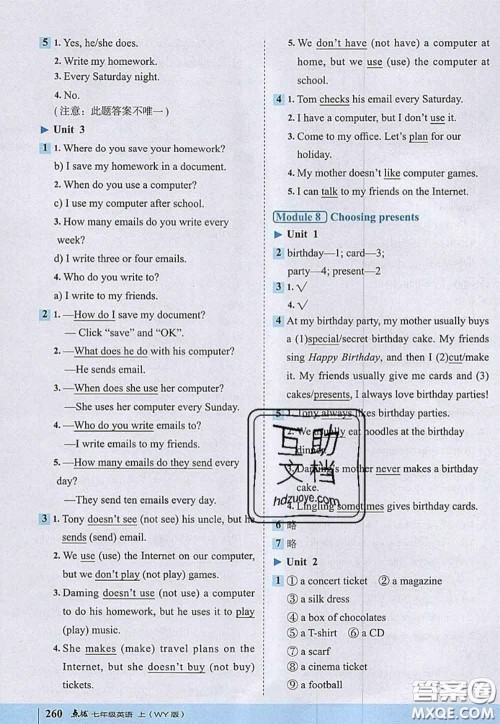 5 1. Yes, he/she does.
2. Write my homework.
3. Every Saturday night.
4. No.
(注意：此题答案不唯一)
Unit 3
1 1. Where do you save your homework?
b) I save my homework in a document.
2. When do you use a computer?
c) I use my computer after school.
3. How many emails do you write every
week?
d) I write three or four emails.
4. Who do you write to?
a) I write to my friends.
2 1. —How do I save my document?
— Click “save” and “OK”.
2. —What does he do with his computer?
—He sends email.
3. —When does she use her computer?
—She uses her computer every Sunday.
4. —Who do you write emails to?
—I write emails to my friends.
5. —How many emails do they send every
day?
—They send ten emails every day.
3 1. Tony doesn't see (not see) his uncle, but he
sends (send) email.
2. We use (use) the Internet on our computer,
but we don't play (not play) games.
3. Daming doesn't use (not use) a computer
to do his homework, but he uses it to play
(play) music.
4. She makes (make) travel plans on the
Internet, but she doesn't buy (not buy)
tickets.
260 点拨 七年级英语 上 (WY 版)
5. We don't have (not have) a computer at
home, but we use (use) the computer at
school.
4 1. Tom checks his email every Saturday.
2. I have a computer, but I don't use it.
3. Come to my office. Let's plan for our
holiday.
4. My mother doesn't like computer games.
5. I can talk to my friends on the Internet.
Module 8 Choosing presents
Unit 1
2 birthday—1; card—3;
party—4; present—2
3 1. √
4. √
4 At my birthday party, my mother usually buys
a (1)special/secret birthday cake. My friends
sing Happy Birthday, and then I (2)cut/make
it. My friends usually give me cards and (3)
cakes/presents, I always love birthday parties!
5 1. Tony always likes birthday parties.
2. We usually eat noodles at the birthday
dinner.
3. Daming's mother never makes a birthday
cake.
4. Lingling sometimes gives birthday cards.
6 略
7 略
Unit 2
1 ① a concert ticket ② a magazine
③ a silk dress
④ a box of chocolates
⑤ a T-shirt ⑥ a CD
⑦ a scarf
⑧ a cinema ticket
⑨ a football
互助
文档
hdzuoye.com
答案圈
MXQE.COM